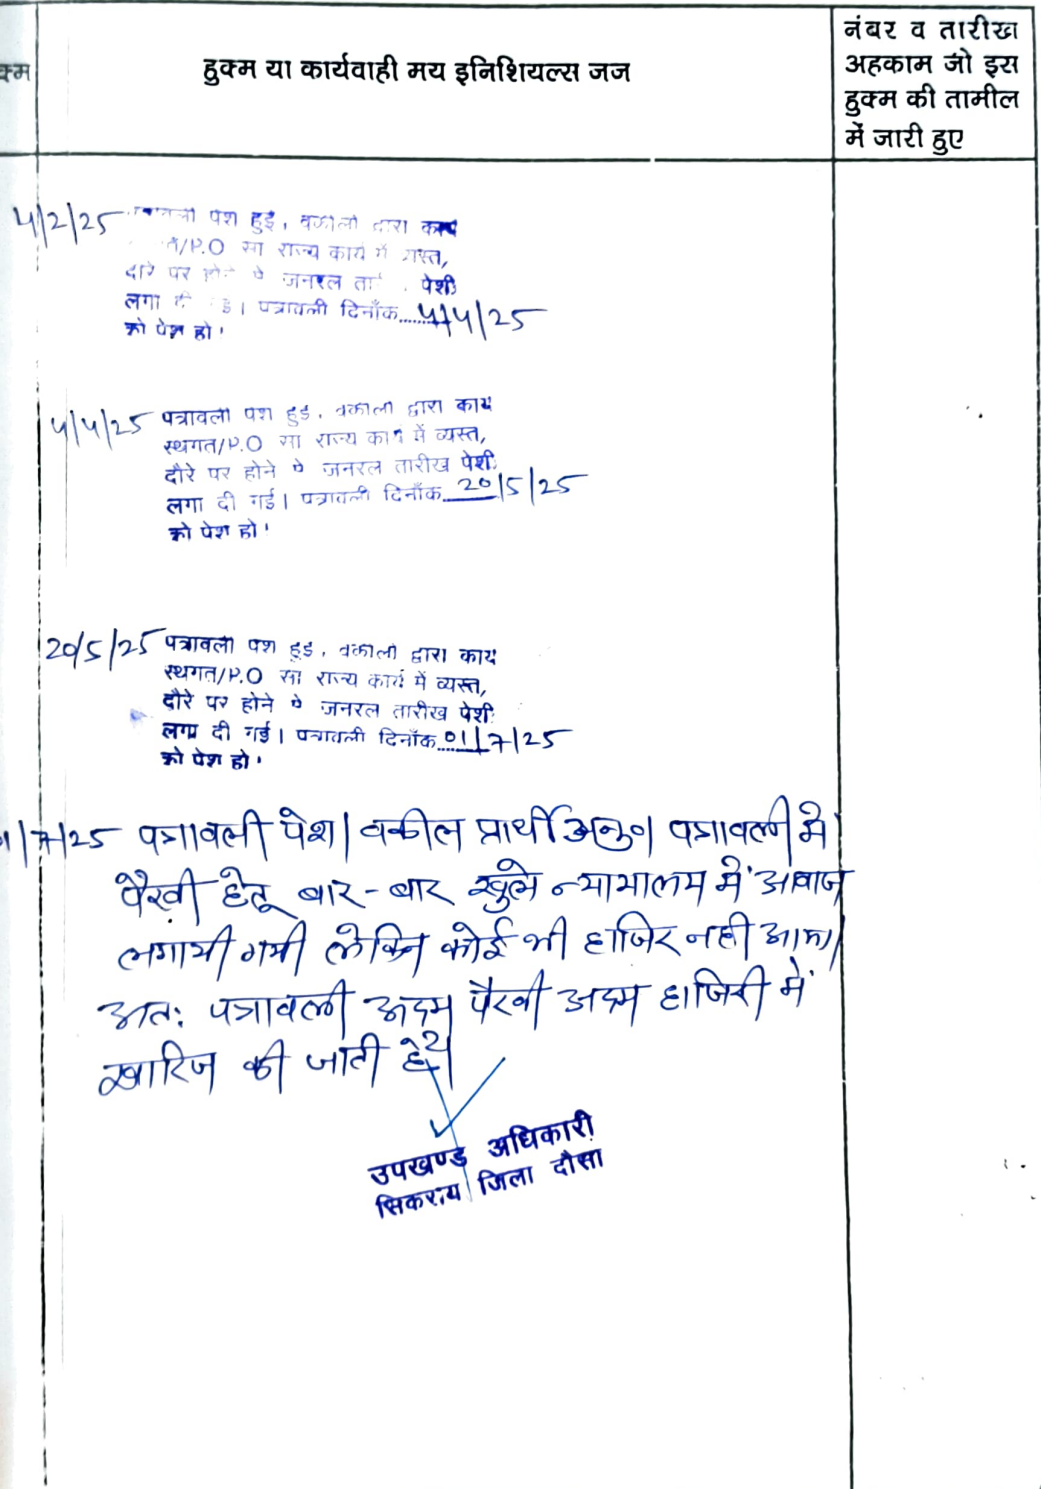 क्म
हुक्म या कार्यवाही मय इनिशियल्स जज
नंबर व तारीख
अहकाम जो इस
हुक्म की तामील
में जारी हुए
4/2/25 पेश हुई, वकीलों द्वारा कार्य
/P.O सा राज्य कार्य में व्यस्त,
दौरे पर होने पे जनरल पेशी
लगा दी गई। पत्रावली दिनाँक......4/4/25
को पेश हो।
4/4/25 पत्रावली पेश हुई, वकीलों द्वारा कार्य
स्थगत/P.O सा राज्य कार्य में व्यस्त,
दौरे पर होने पे जनरल तारीख पेशी
लगा दी गई। पत्रावली दिनाँक 20/5/25
को पेश हो।
20/5/25 पत्रावली पेश हुई, वकीलों द्वारा कार्य
स्थगत/P.O सा राज्य कार्य में व्यस्त,
दौरे पर होने पे जनरल तारीख पेशी
लगा दी गई। पत्रावली दिनाँक...01/7/25
को पेश हो।
01/7/25 पत्रावली पेश। वकील प्रार्थी अनु०। पत्रावली में
पैरवी हेतू बार-बार खुले न्यायालय में आवाज
लगायी गयी लेकिन कोई भी हाजिर नही आया।
अतः पत्रावली अदम पैरवी अदम हाजिरी में
खारिज की जाती है।
उपखण्ड अधिकारी
सिकराय जिला दौसा